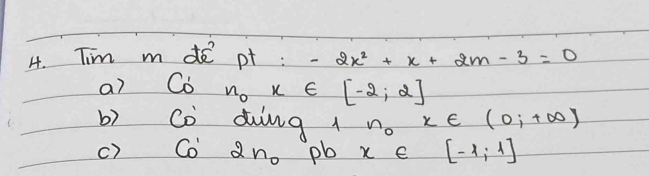 4. Tìm m để pt : - 2x² + x + 2m - 3 = 0
a) Có n₀ x ∈ [-2; 2]
b) Có đúng 1 n₀ x ∈ (0; +∞)
c) Có 2n₀ pb x ∈ [-1; 1]